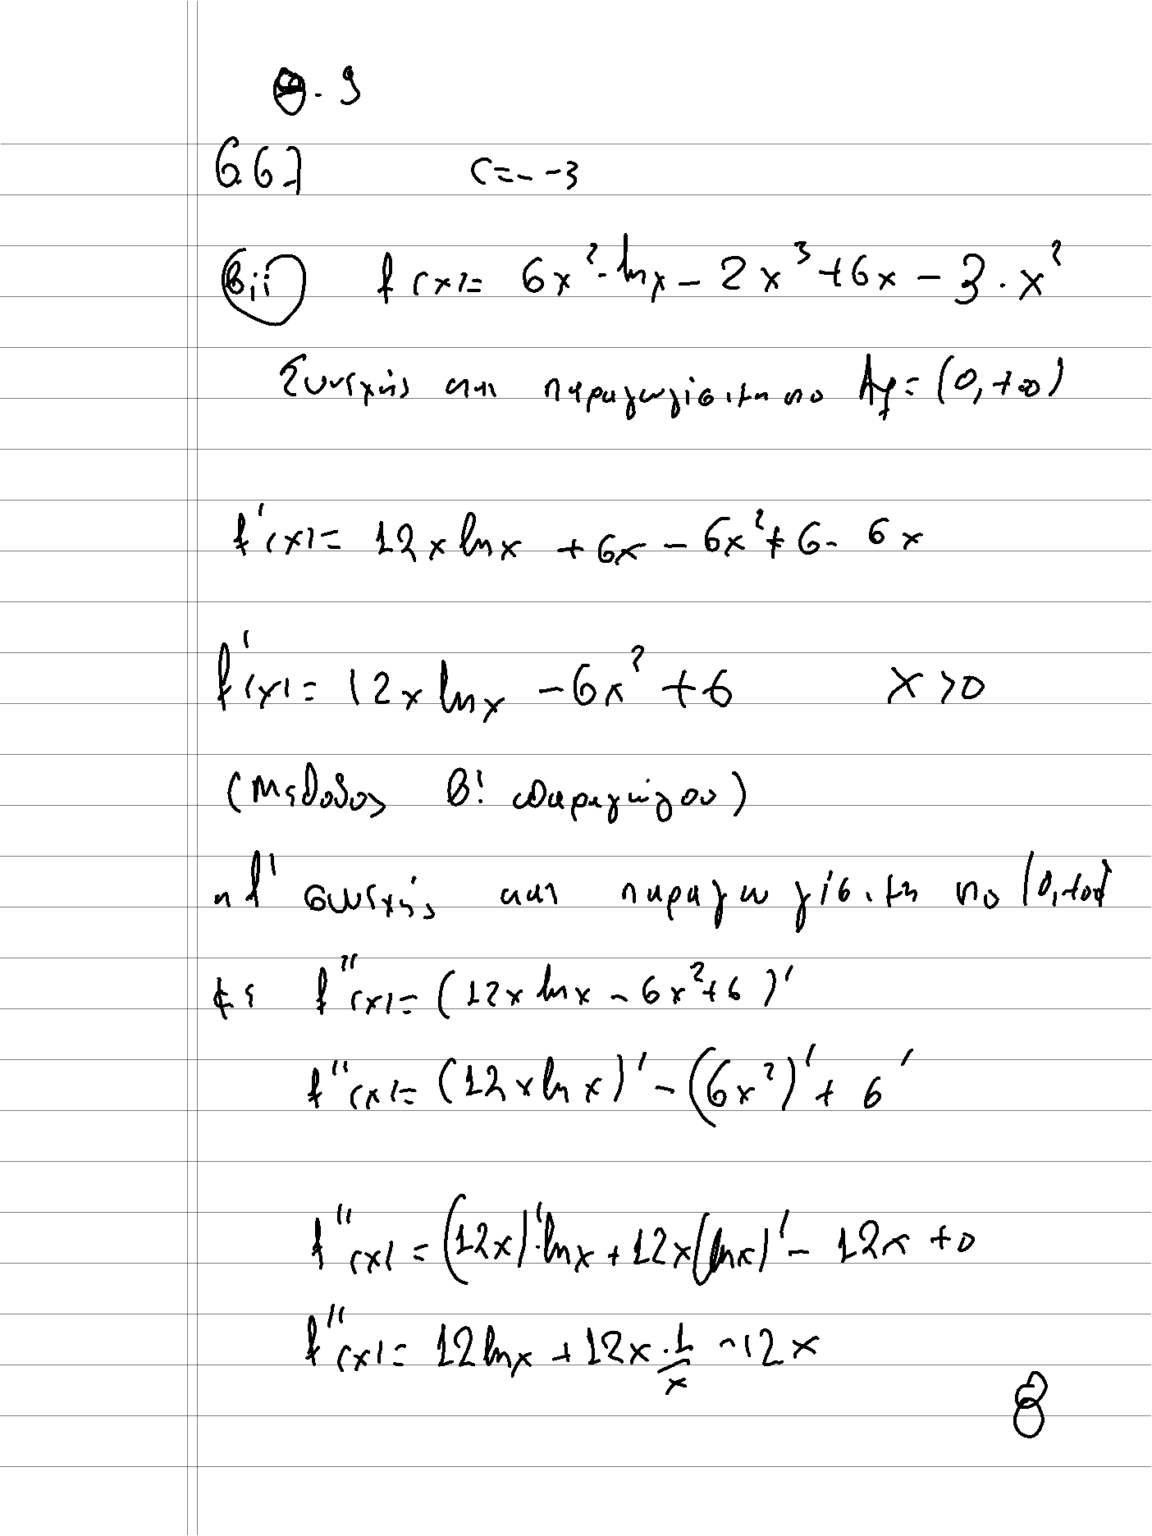 . 9
6.67 c=--3
βii f(x)= 6x²·lnx - 2x³+6x - 3·x²
Συνεχής και παραγωγίσιμη στο Af=(0,+∞)
f'(x)= 12xlnx + 6x - 6x²+6- 6x
f'(x)= 12xlnx -6x²+6 x>0
(Μέθοδος Β! παραγώγου)
η f' συνεχής και παραγωγίσιμη στο (0,+∞)
με f''(x)=(12xlnx - 6x²+6)'
f''(x)=(12xlnx)'-(6x²)'+6'
f''(x)=(12x)'·lnx+12x(lnx)'- 12x+0
f''(x)= 12lnx+12x·1/x -12x
8